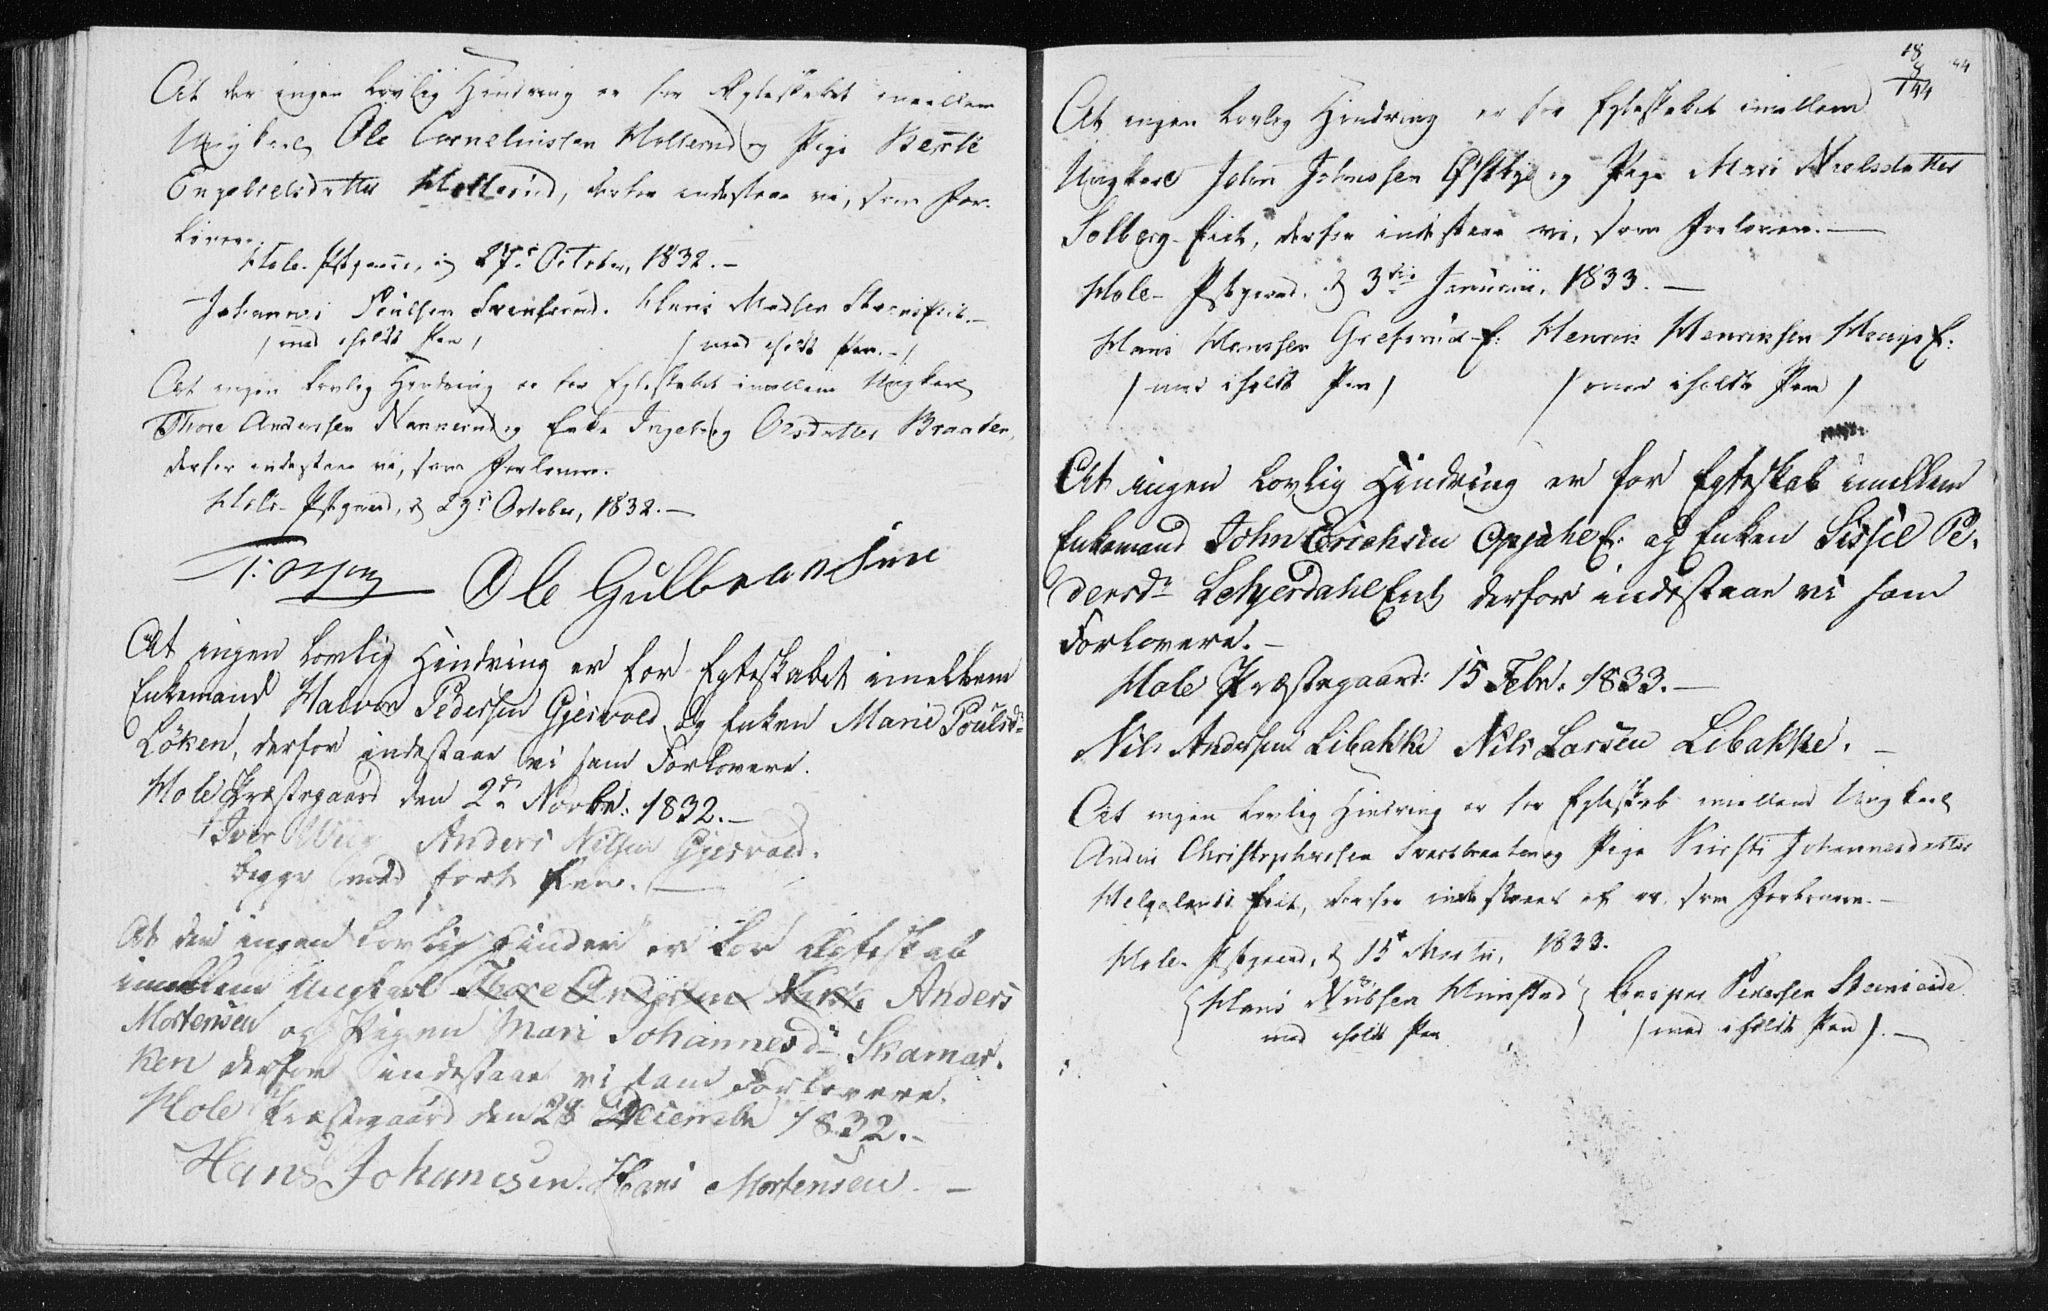 At der ingen lovlig Hindring er for Ægteskabet imellem
Ungkarl Ole Cornelinssen Hollerud og Pige Berte
Engebretsdatter Hollerud, derfor indestaae vi, som For-
lovere.
Hole Pstgaard, d 27de October, 1832.-
Johannes Poulsen Svensrud. Hans Madsen Steenseie-
/ med iholdt Pen / / med iholdt Pen.-/
At ingen lovlig Hindring er for Egteskabet imellem Ungkarl
Thore Anderssen Nannerud og Enke Ingeborg Olsdatter Braaten,
derfor indestaae vi, som Forlovere.
Hole Pstgaard, d 29de October, 1832.-
Ole Gulbransen
At ingen Lovlig Hindring er for Egteskabet imellem
Enkemand Halvor Pedersen Gjesvold og Enken Marie Poulsdr
Løken, derfor indestaae vi som Forlovere.
Hole Præstegaard den 2de Novbr: 1832.-
Iver Wiig Anders Nilsen Gjesvold.
begge med ført Pen.-
At der ingen Lovlig Hinder er for Ægteskab
imellem Ungkarl Thore Andersen Anders
Mortensen og Pigen Mari Johannesdr Skamar-
ken derfor indestaae vi som Forlovere.
Hole Præstegaard den 28 Decembr 1832.-
Hans Johanesen. Hans Mortensen.-
18
9
144
44
At ingen Lovlig Hindring er for Egteskabet imellem
Ungkarl John Johnssen Østbye og Pige Mari Nielsdatter
Solberg-Eiet, derfor indestaae vi, som Forlovere.-
Hole- Pstgaard, d 3die Januarii, 1833.-
Hans Hanssen Grefsrud-E: Henrik Henriksen Haugs E:
/ med iholdt Pen / / med iholdt Pen /
At ingen Lovlig Hindring er for Egteskab imellem
Enkemand John Erichsen Opsahl E: og Enken Sissel Pe-
dersdr Letjerdahl Eiet derfor indestaae vi som
Forlovere.-
Hole Præstegaard: 15 Febr: 1833.-
Nils Andersen Libakke Nils Larsen Libakke.-
At ingen Lovlig Hindring er for Egteskab imellem Ungkarl
Anders Christophersen Svartbraaten og Pige Kirsti Johannesdatter
Helgelands Eiet, derfor indestaaes af os, som Forlovere.-
Hole- Pstgaard, d 15 Martii, 1833.
Hans Nubsen Hunstad Casper Pedersen Steenseie
med iholdt Pen / med iholdt Pen /.-